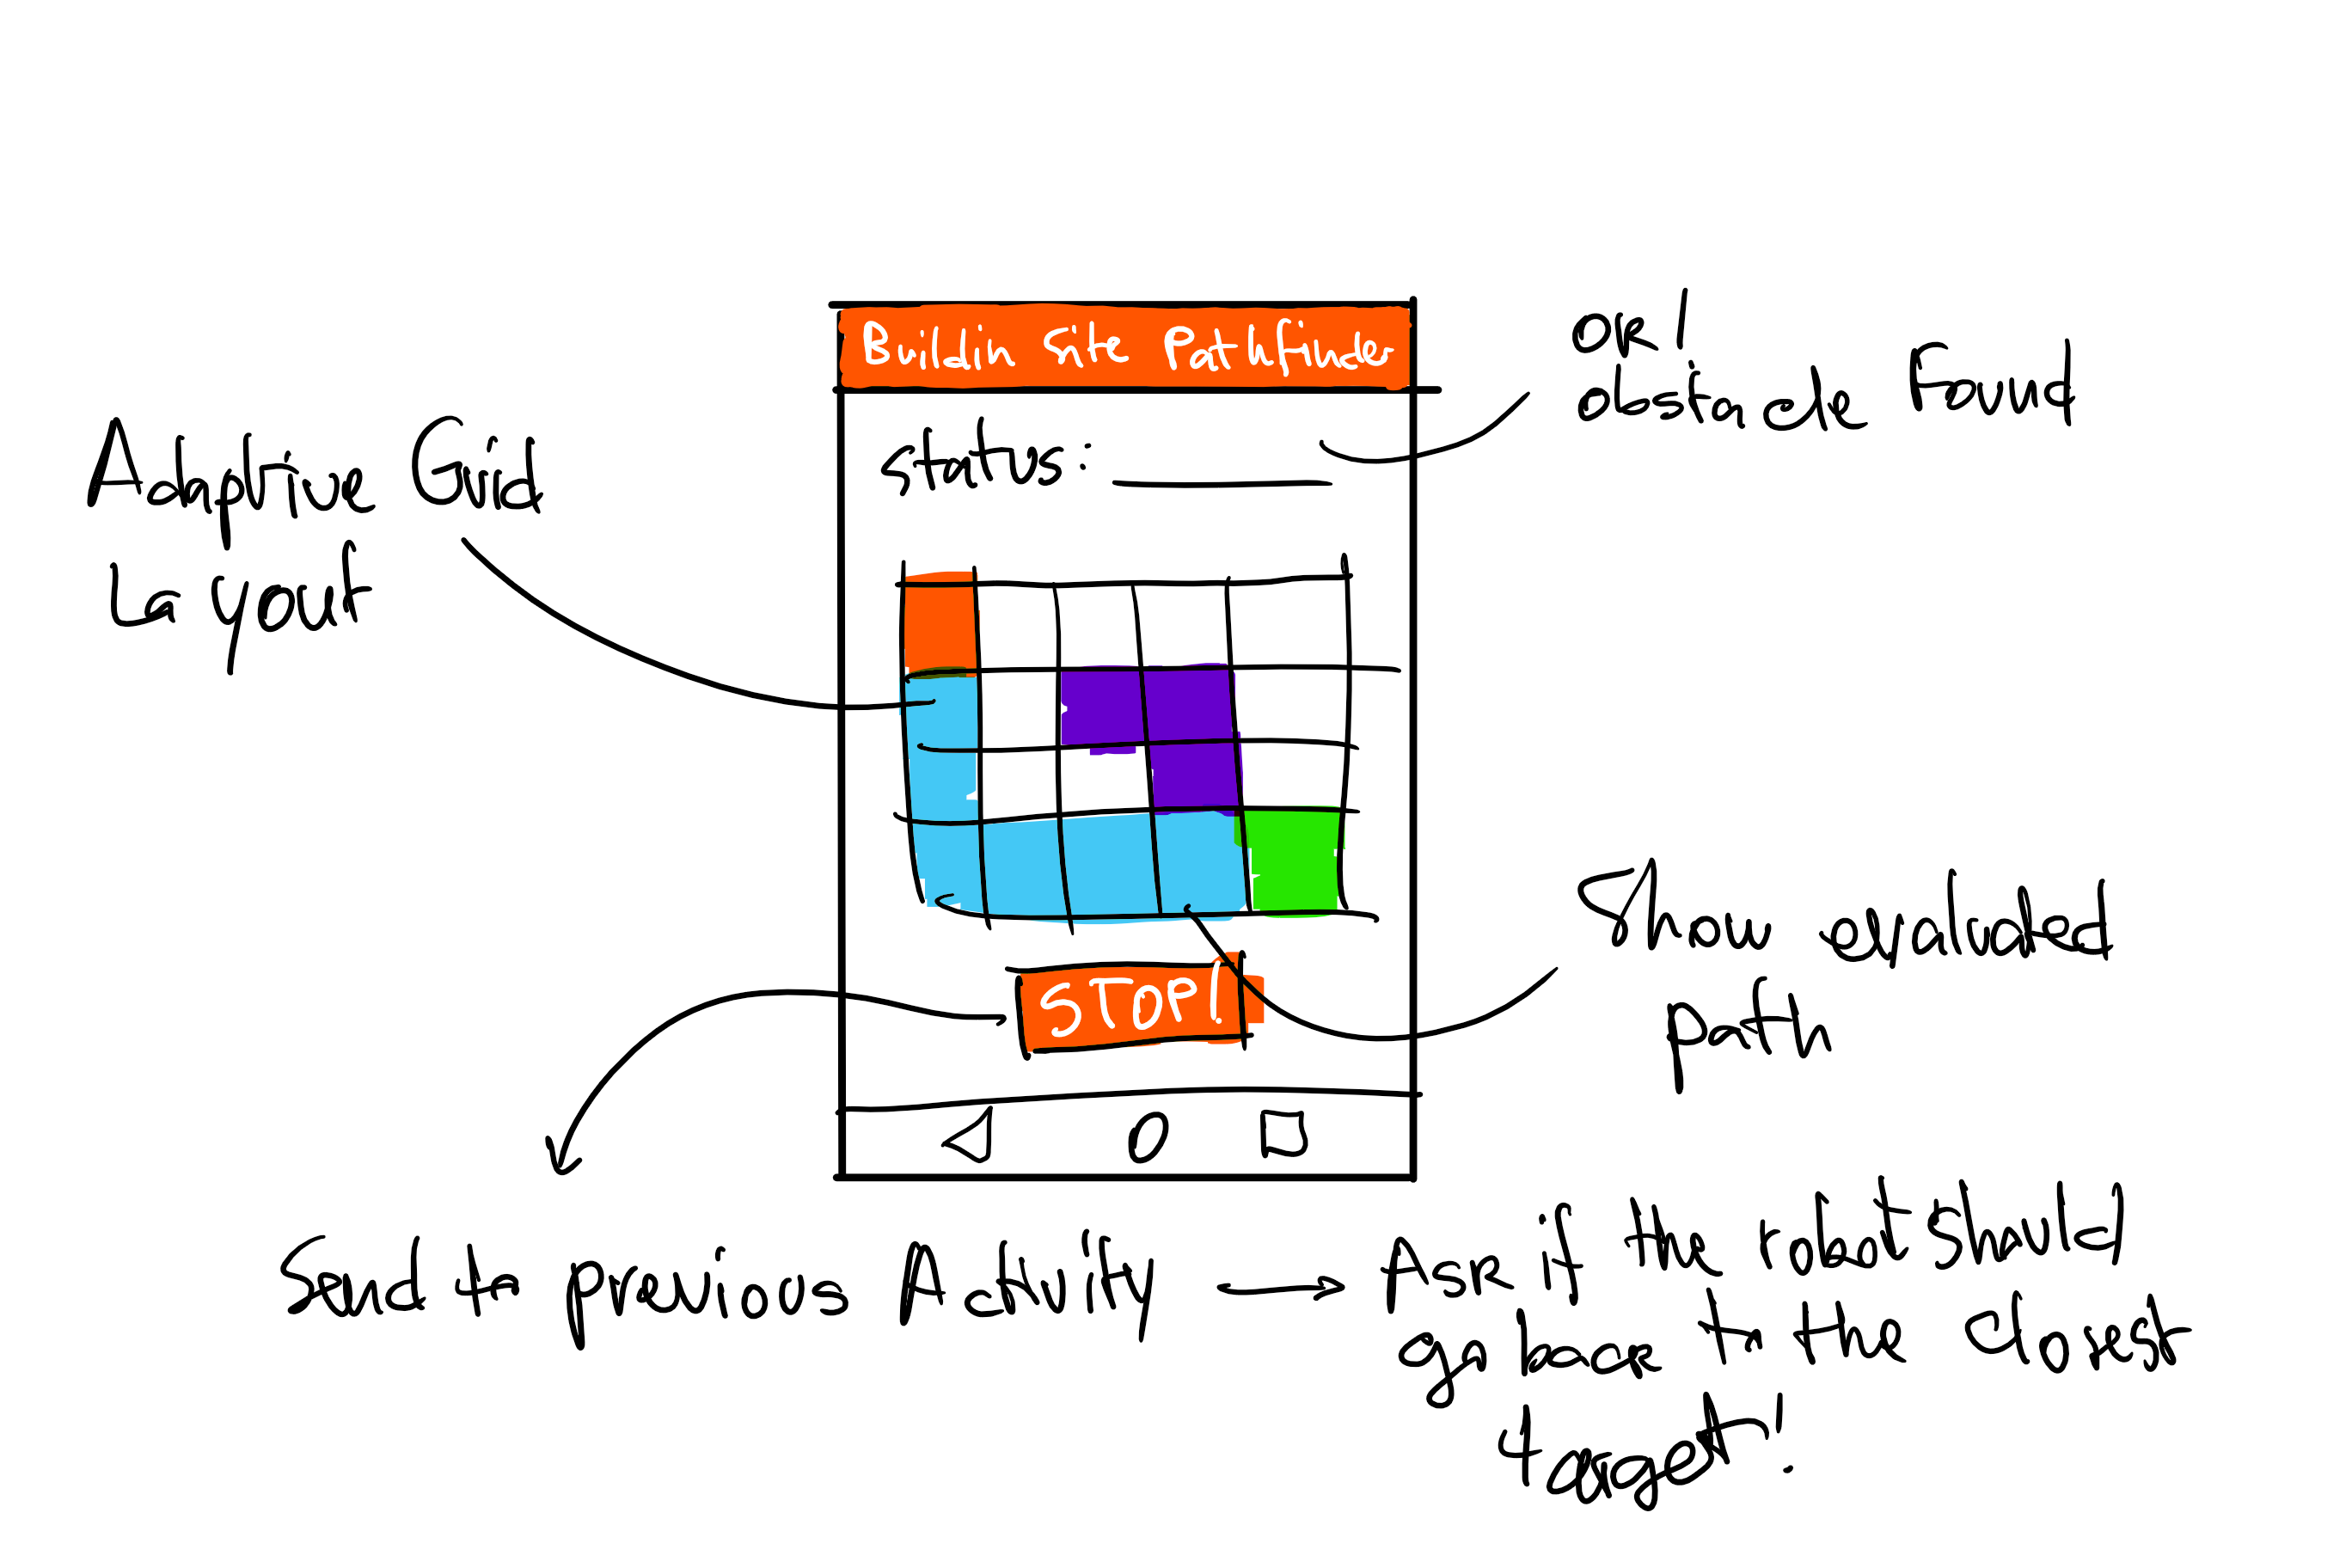 Buildin Site Pathfinder
Status:
ok /
obsticale Found
Adaptive Grid
Layout
STOP!
Show evaluated
path
Send to previous Activity
Ask if the robot should
go back to the closest
target!